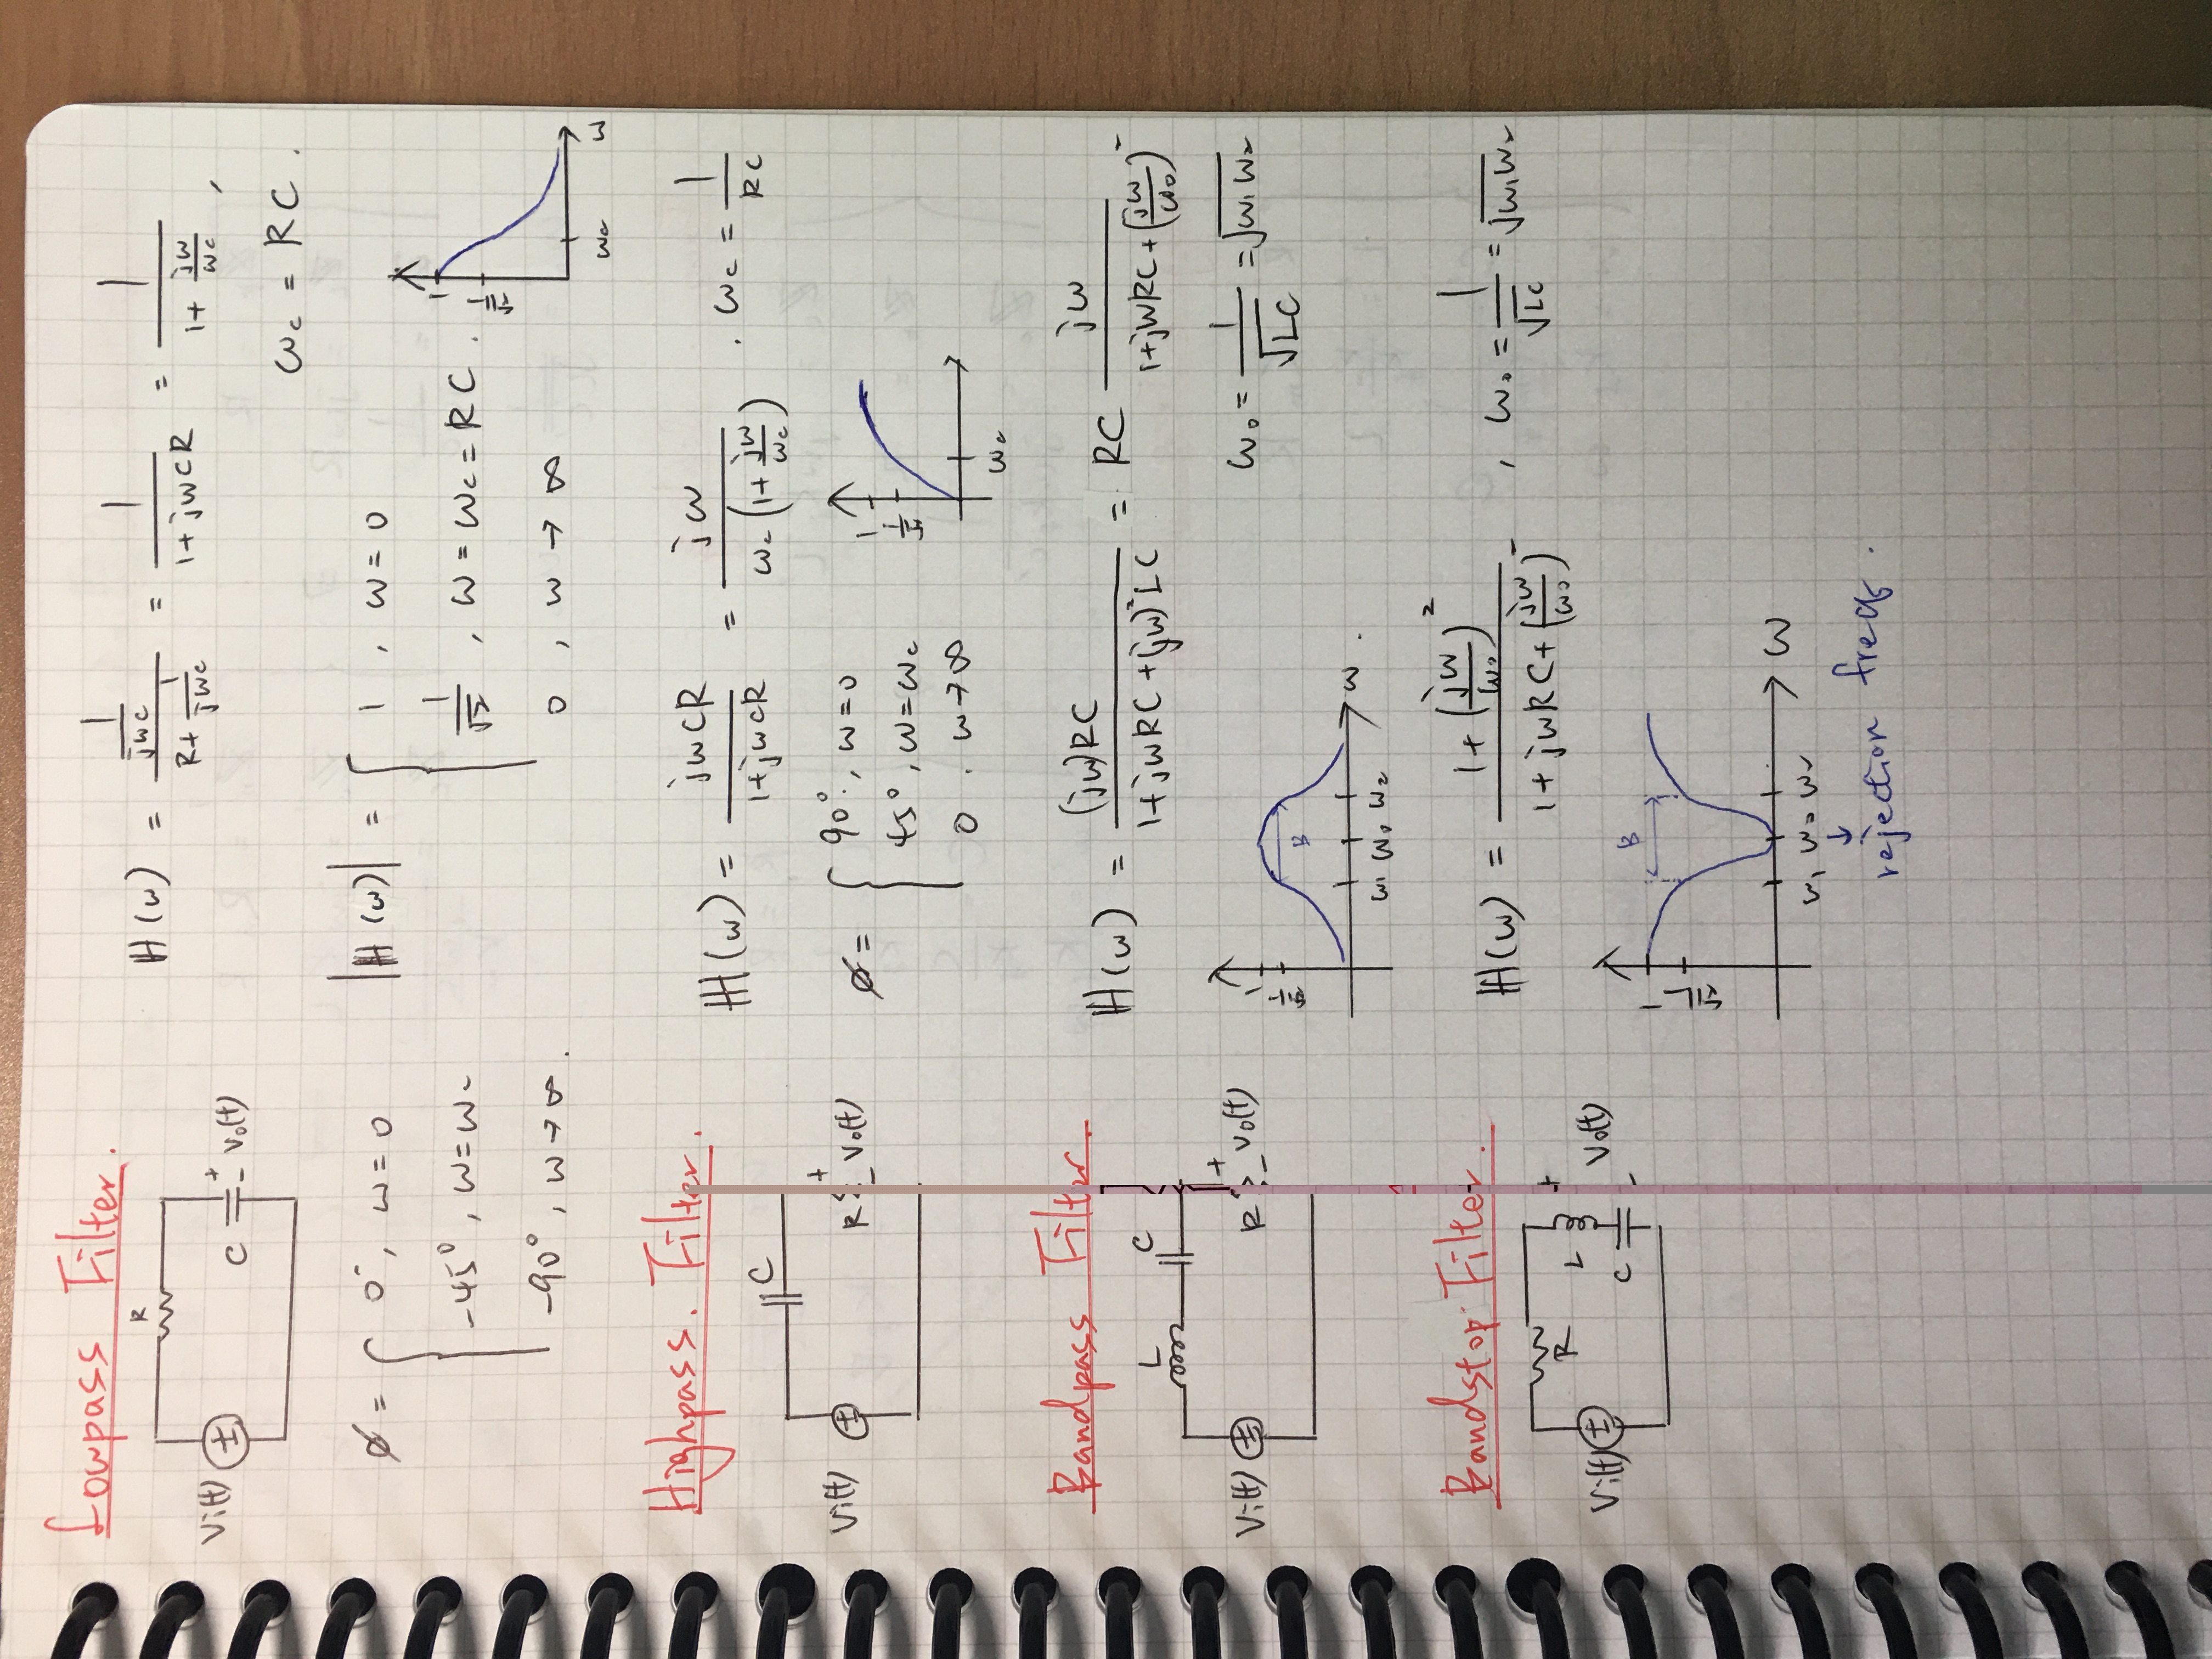 Lowpass Filter.
R
Vi(t) ± C + - Vo(t)
ℍ(ω) = (1/jωC)/(R + 1/jωC) = 1/(1+jωCR) = 1/(1+ jω/ωc) ,
ωc = RC .
ø = { 0°, ω=0
-45°, ω=ωc
-90°, ω→∞.
|ℍ(ω)| = { 1 , ω=0
1/√2 , ω=ωc=RC .
0 , ω→∞
1
1/√2
ωc ω
Highpass. Filter.
C
Vi(t) ± R + - Vo(t)
ℍ(ω) = jωCR/(1+jωCR) = jω/(ωc(1+ jω/ωc)) . ωc = 1/RC
ø= { 90°, ω=0
45°, ω=ωc
0 . ω→∞
1
1/√2
ωc
Bandpass Filter.
L C
Vi(t) ± R + - Vo(t)
ℍ(ω) = (jω)RC/(1+jωRC+(jω)²LC) = RC jω/(1+jωRC+(jω/ω0)²)
ω0 = 1/√LC = √ω1ω2
1
1/√2
B
ω1 ω0 ω2 ω .
Bandstop Filter.
R
L
C
Vi(t) ± + - Vo(t)
ℍ(ω) = (1+(jω/ω0)²)/(1+jωRC+(jω/ω0)²) , ω0 = 1/√LC = √ω1ω2
B
1
1/√2
ω1 ω0 ω2 ω
↓
rejection freq.